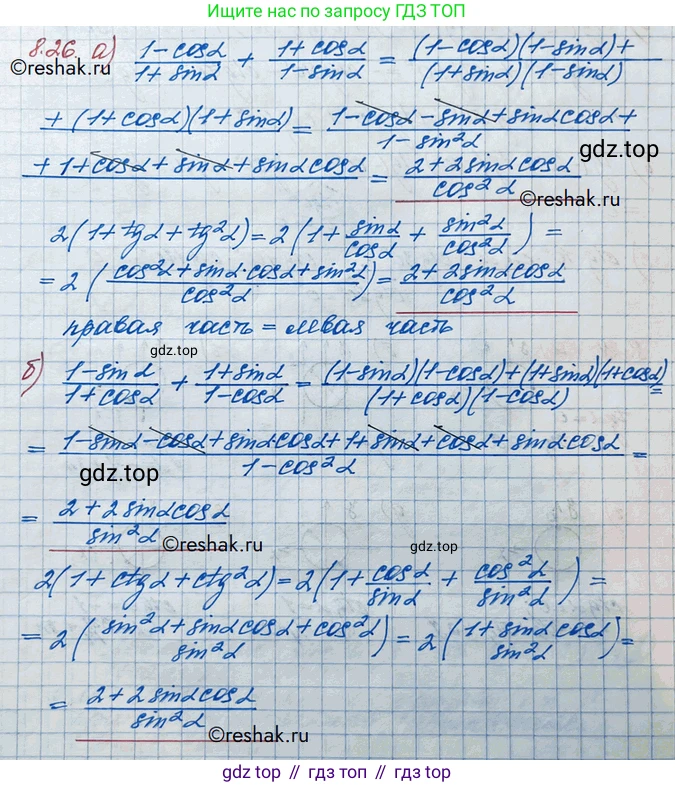 Ищите ответы по запросу ГДЗ ТОП
8.26 а) (1-cosα)/(1+sinα) + (1+cosα)/(1-sinα) = ((1-cosα)(1-sinα)+)/((1+sinα)(1-sinα))
©reshak.ru
+ (1+cosα)(1+sinα) = (1-cosα-sinα+sinαcosα+)/(1-sin²α)
gdz.top
+1+cosα+sinα+sinαcosα = (2+2sinαcosα)/(cos²α)
©reshak.ru
2(1+tgα+tg²α)=2(1+ sinα/cosα + sin²α/cos²α) =
=2((cos²α+sinα·cosα+sin²α)/(cos²α))=(2+2sinαcosα)/(cos²α)
правая часть = левая часть
gdz.top
б) (1-sinα)/(1+cosα) + (1+sinα)/(1-cosα) = ((1-sinα)(1-cosα)+(1+sinα)(1+cosα))/((1+cosα)(1-cosα)) =
= (1-sinα-cosα+sinα·cosα+1+sinα+cosα+sinα·cosα)/(1-cos²α) =
gdz.top
= (2+2sinαcosα)/(sin²α)
©reshak.ru
gdz.top
2(1+ctgα+ctg²α)=2(1+ cosα/sinα + cos²α/sin²α) =
=2((sin²α+sinαcosα+cos²α)/(sin²α))=2((1+sinαcosα)/(sin²α))=
= (2+2sinαcosα)/(sin²α)
©reshak.ru
gdz top // гдз топ // gdz.top